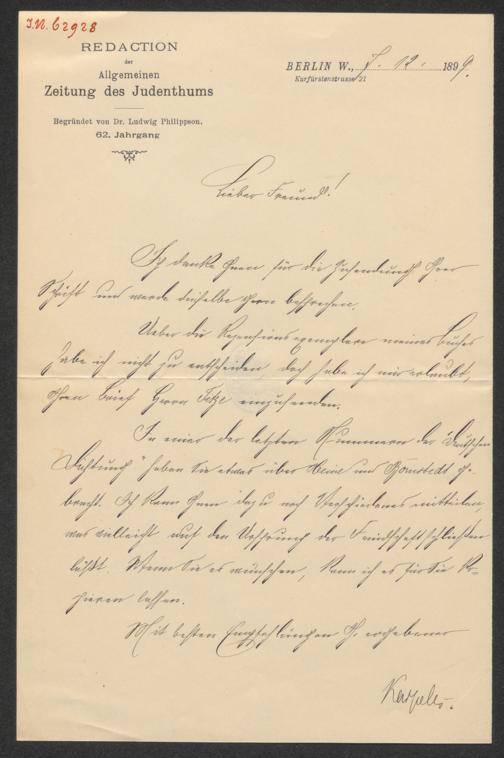 J.N. 62928
REDACTION
der
Allgemeinen
Zeitung des Judenthums
Begründet von Dr. Ludwig Philippson.
62. Jahrgang
BERLIN W., 7. 12. 1899.
Kurfürstenstrasse 21
Lieber Freund!
Ich danke Ihnen für die Zusendung Ihrer
Schrift und werde dieselbe gern besprechen.
Ueber die Rezensionsexemplare meines Buches
habe ich nicht zu entscheiden, doch habe ich mir erlaubt,
Ihren Brief Herrn Titze einzusenden.
In einer der letzten Nummern der "Deutschen
Dichtung" haben Sie etwas über Heine und Börnstedt ge-
bracht. Ich kann Ihnen dazu noch Verschiedenes mitteilen,
was vielleicht auf den Ursprung der Feindschaft schließen
läßt. Wenn Sie es wünschen, kann ich es für Sie ko-
pieren lassen.
Mit besten Empfehlungen Ihr ergebener
Karpeles.